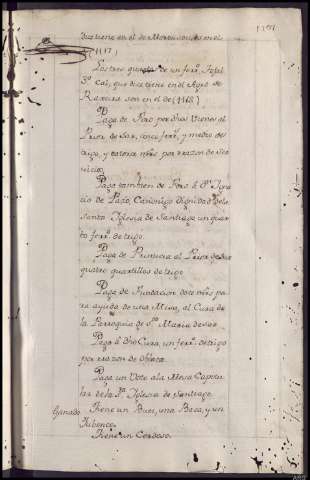 que tiene en el de
(1117)
Las tres quartas de un ferr.o total
3.a Cal, que dice tiene en el Agro de
son en el de (1118)
Paga de Foro por dhos Vienes al
Prior de Sar, cinco ferr.s y medio de
trigo, y catorce mrs por razon de ser
vicio
Paga tambien de Foro à D.n Igna
cio de Pazo, Canonigo Dignidad dela
Santa Iglesia de Santiago un quar
to ferr.o de trigo.
Paga de Primicia al Prior de Sar
quatro quartillos de trigo
Paga de Fundacion doce mrs pa
ra ayuda de una Misa, al Cura de
la Parroquia de S.ta Maria de Sar
Paga à dho Cura, un ferr.o de trigo
por razon de Oblata
Paga un Voto ala Mesa Capitu
lar de la S.ta Iglesia de Santiago
Ganado Tiene un Buei, una Baca, y un
Jubenco
Tiene un Cerdo